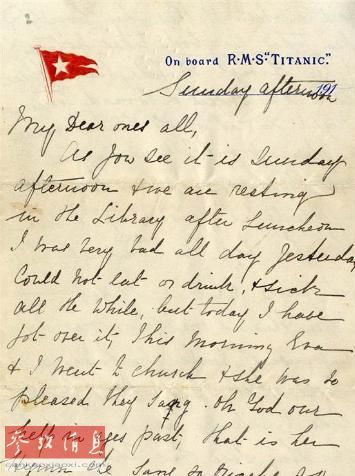 On board R·M·S "TITANIC."
Sunday afternoon 191
My Dear ones all,
As you see it is Sunday
afternoon & we are resting
in the Library after Luncheon
I was very bad all day Yesterday
Could not eat or drink, & sick
all the while, but today I have
got over it, This morning Eva
& I went to church & she was so
pleased they sang. Oh God our
help in ages past, that is her
Hymn she sang so nicely
参考消息
cankaoxiaoxi.com